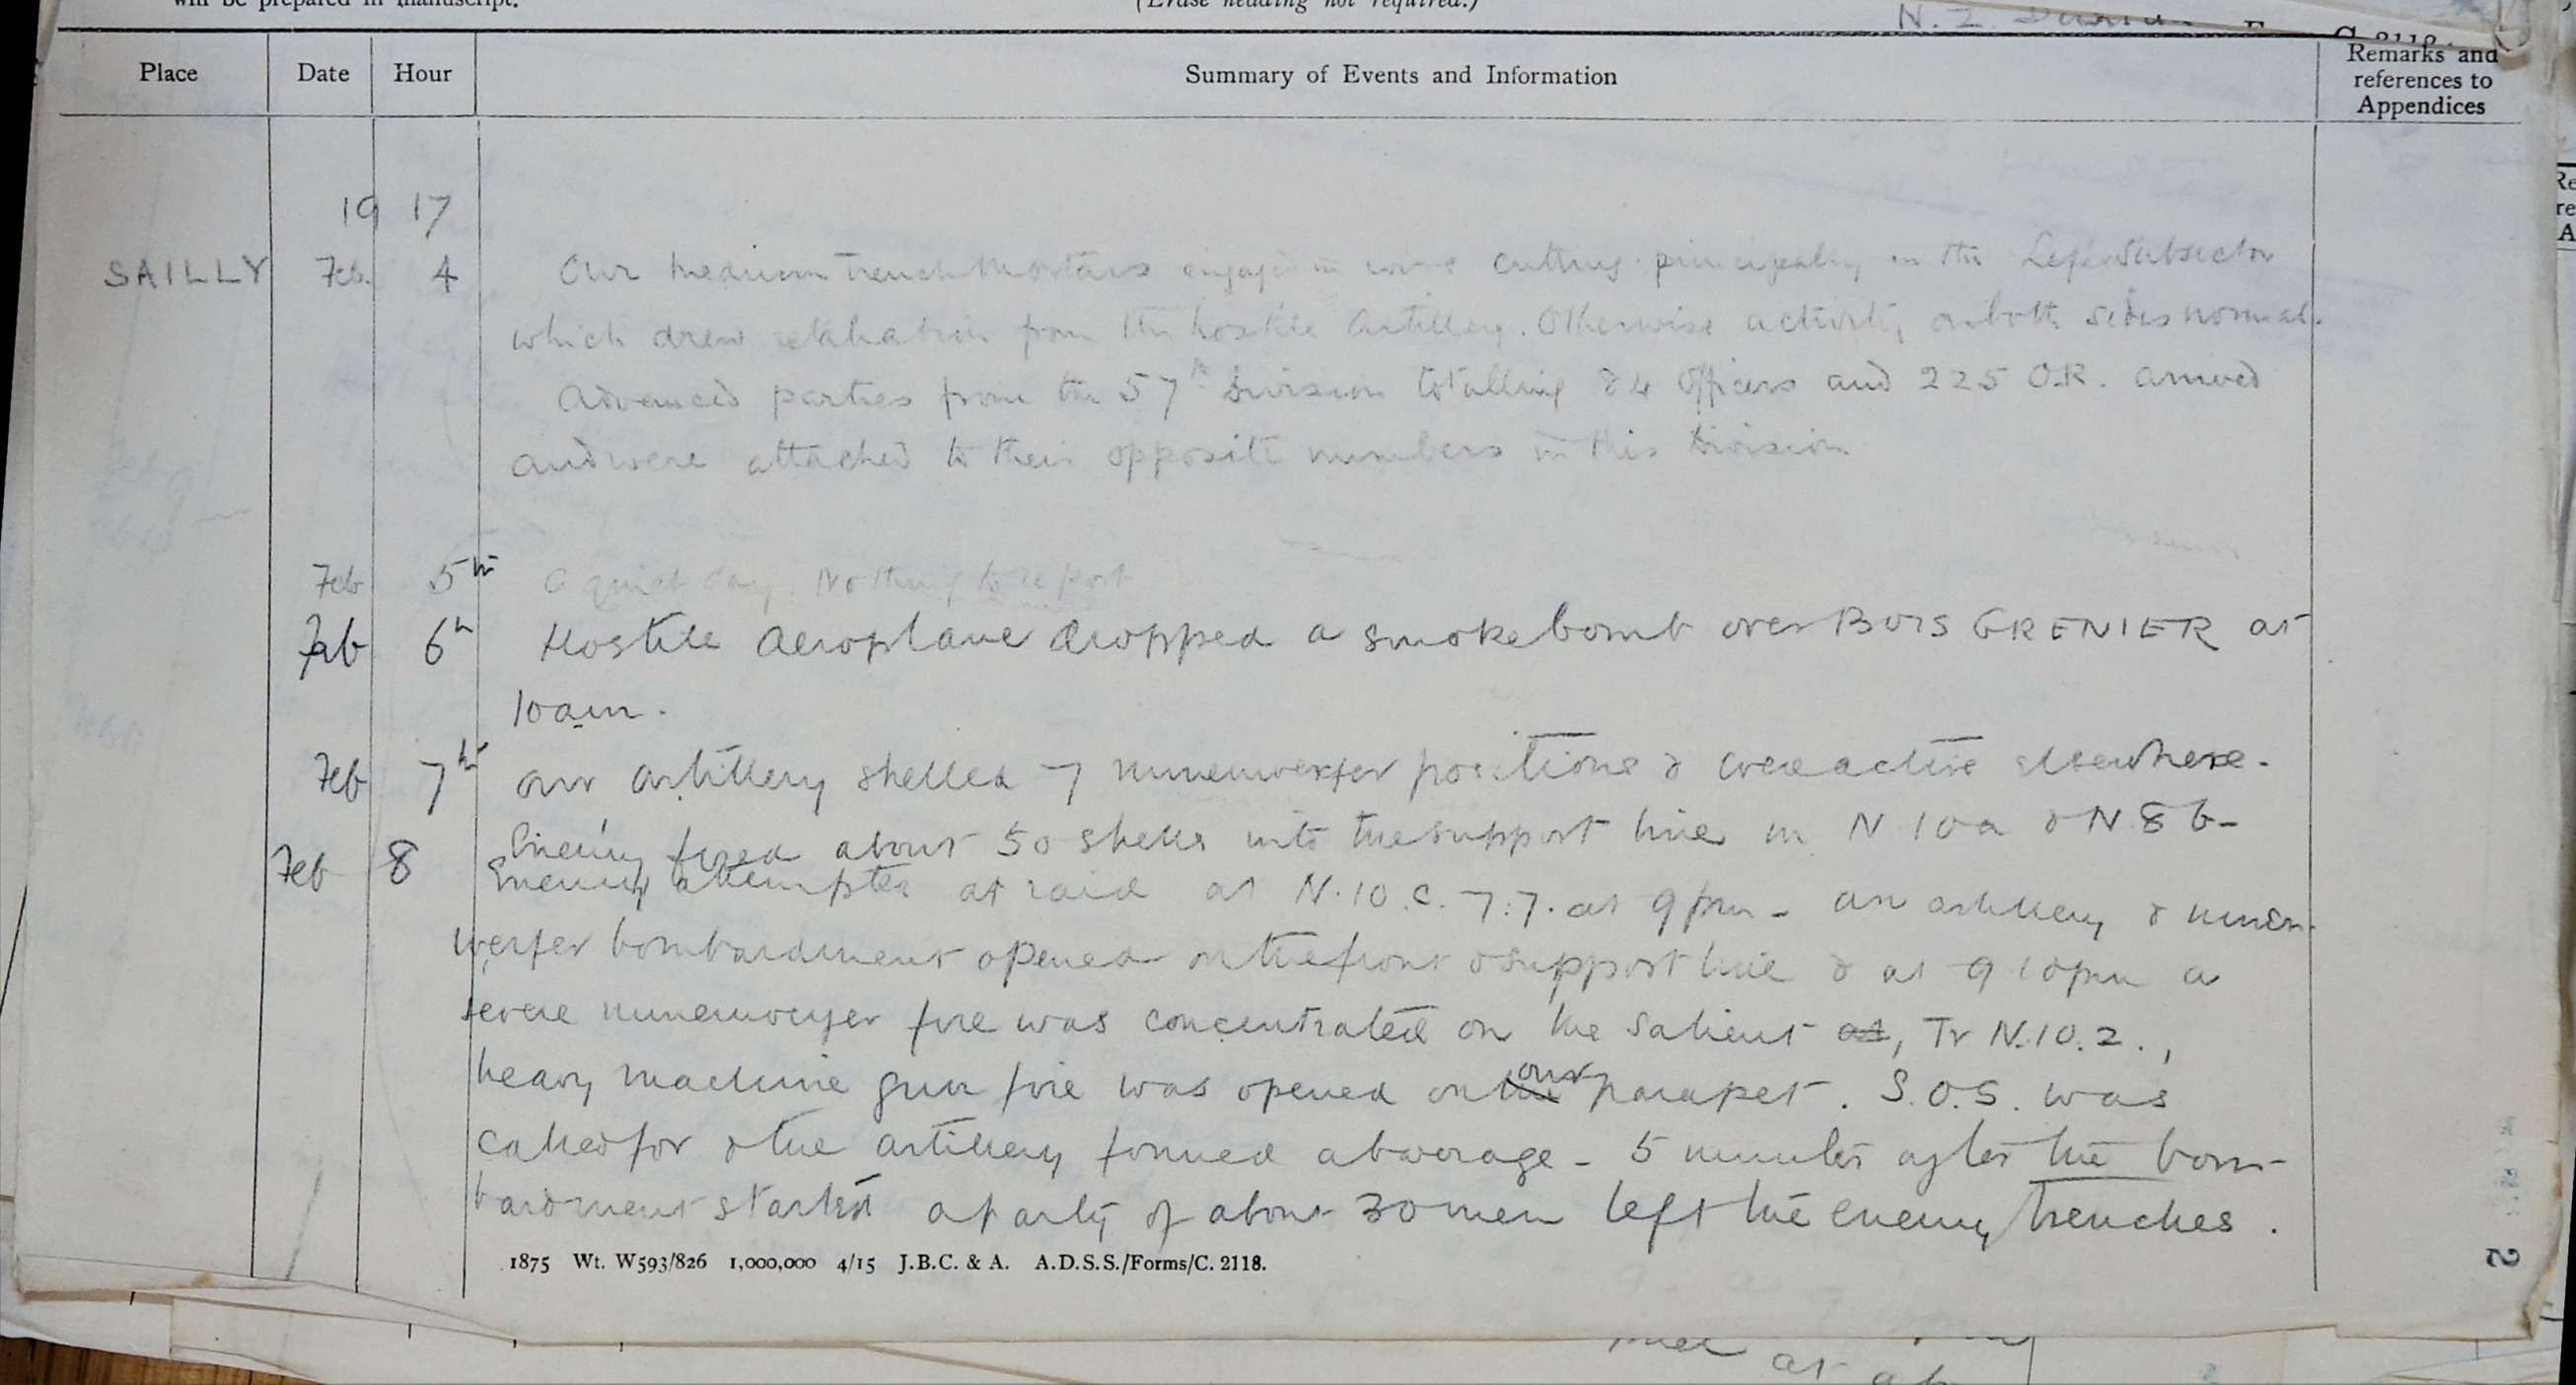 will be prepared in manuscript.
(Erase heading not required.)
N. Z. Division
Place Date Hour Summary of Events and Information Remarks and references to Appendices
1917
SAILLY Feb. 4 Our medium trench mortars engaged in wire cutting principally in the Left Subsector
which drew retaliation from the hostile Artillery. Otherwise activity on both sides normal.
Advanced parties from the 57th Division totalling 84 Officers and 225 O.R. arrived
and were attached to their opposite numbers in this Division
Feb 5th A quiet day. Nothing to report
Feb 6th Hostile Aeroplane dropped a smoke bomb over BOIS GRENIER at
10 am.
Feb 7th Our artillery shelled 7 minenwerfer positions & were active elsewhere.
Enemy fired about 50 shells into the support line in N 10a & N 8 b-
Feb 8 Enemy attempted at raid at N.10.c.7.7. at 9 pm - an artillery & minen-
werfer bombardment opened on the front & support line & at 9 10 pm a
severe minenwerfer fire was concentrated on the Salient at, Tr N.10.2.,
heavy machine gun fire was opened on the our parapet. S.O.S. was
called for & the artillery formed a barrage - 5 minutes after the bom-
bardment started a party of about 30 men left the enemy trenches.
1875 Wt. W593/826 1,000,000 4/15 J.B.C. & A. A.D.S.S./Forms/C. 2118.
at